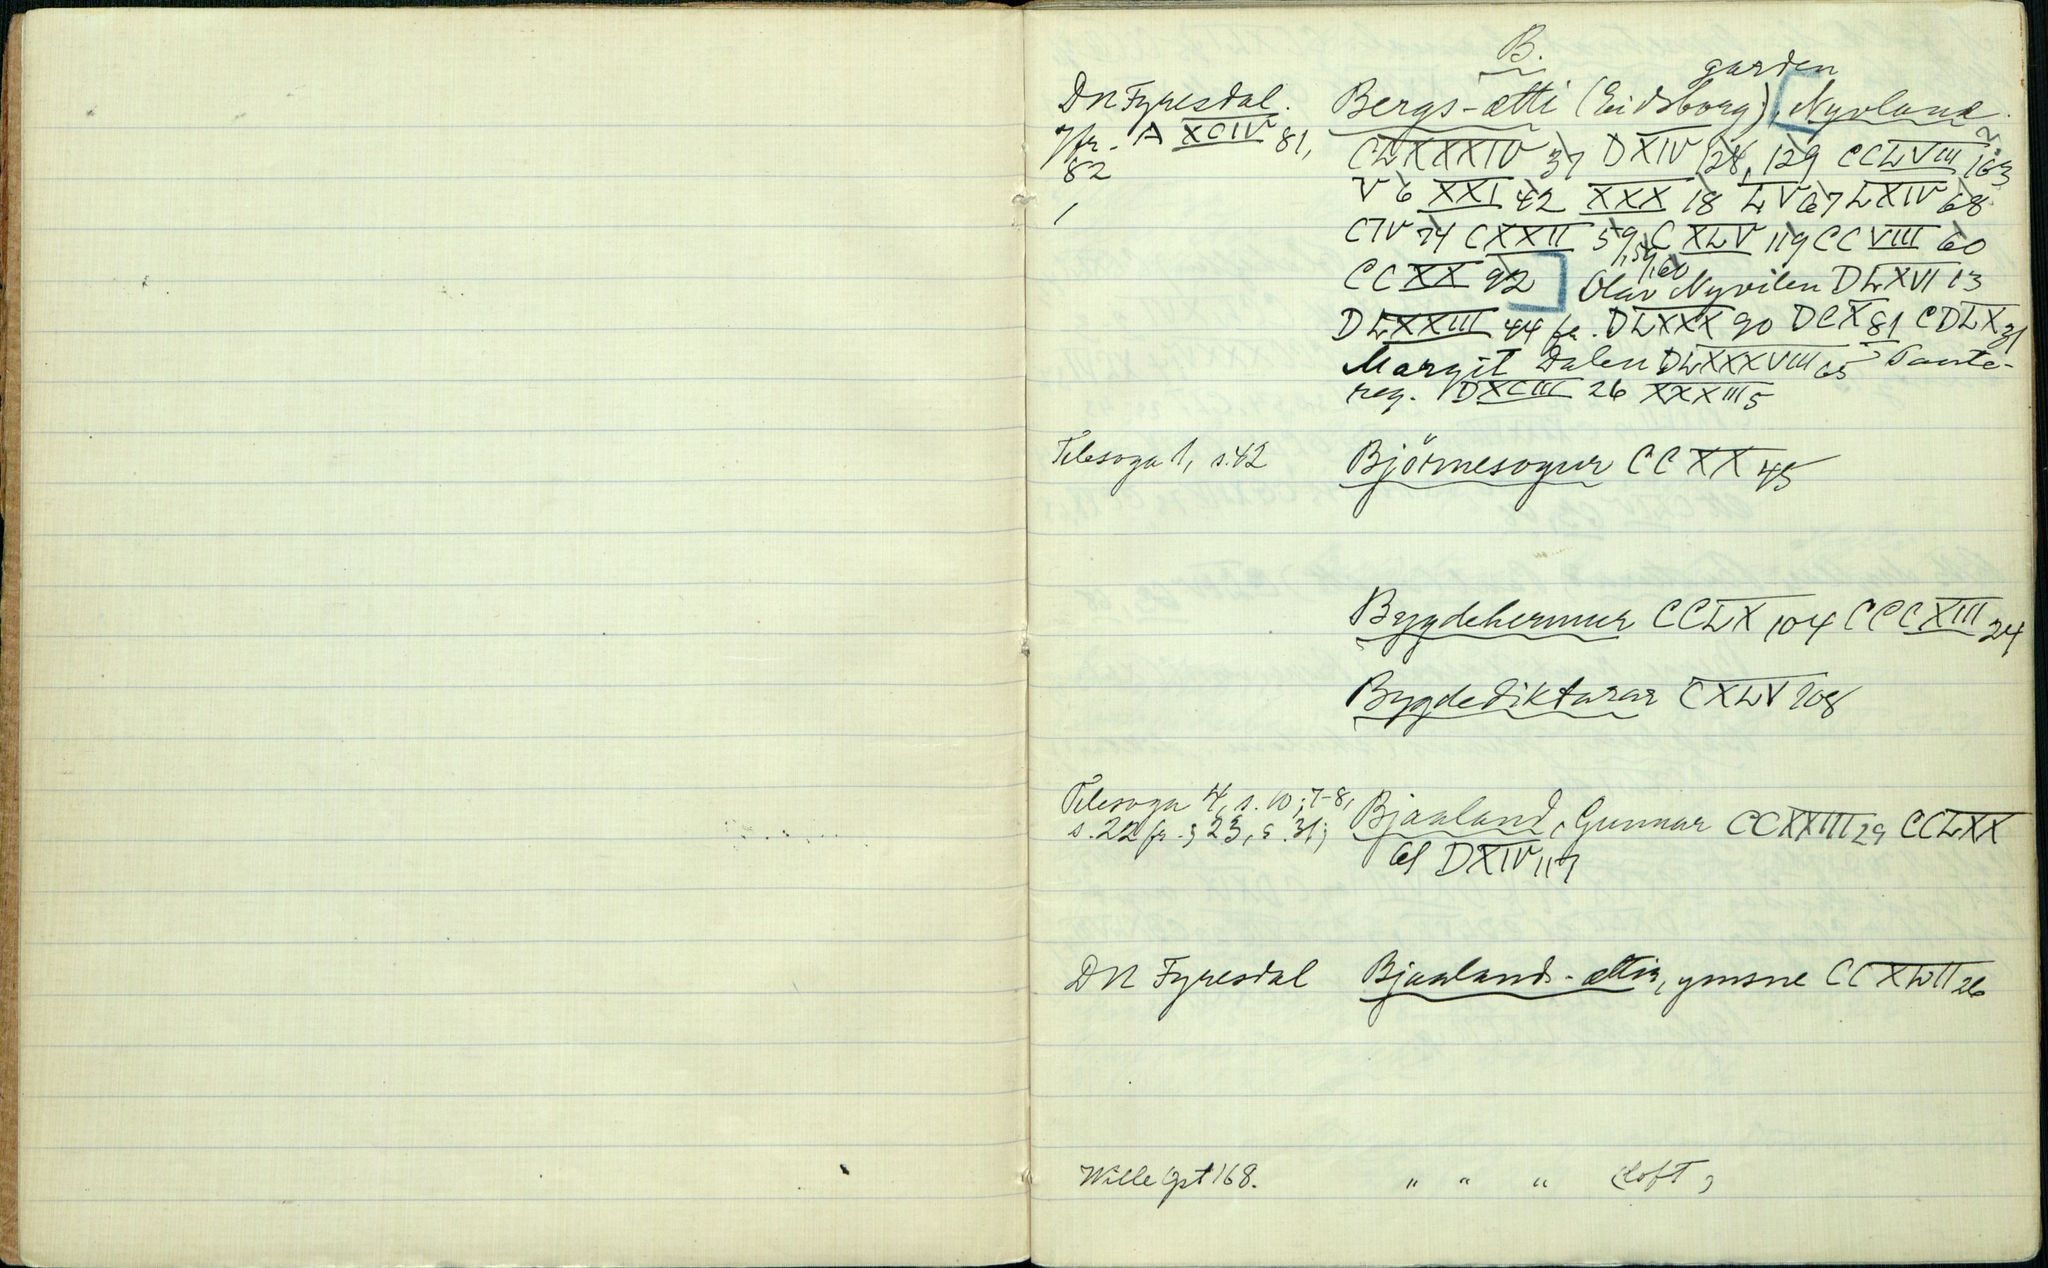 B.
garden
DN Fyresdal. Bergs-ætti (Eidsborg), Nyvland.
Jfr. A XCIV 81, CLXXXIV 37 DXIV 128, 129 CCLVIII 163
82 V 6 XXI 42 XXX 18 LV 67 LXIV 68
1 CIV 74 CXXII 59, CXLV 119 CCVIII 60
, 59, 60
CCXX 92 Olav Nyvilen DLXVI 13
DLXXIII 44 fr. DLXXX 90 DCX 81 CDLX 31
Margit Dalen DLXXXVIII 65 Tante-
reg. DXCIII 26 XXXIII 5
Telesoga 1, s. 42 Bjørnesogur CCXX 45
Bygdehermur CCLX 104 CCCXIII 24
Bygdediktarar CXLV 108
Telesoga 4, s. 10; 7-8, Bjaaland, Gunnar CCXXIII 29 CCLXX
s. 22 fr.; 23, s. 31; 61 DXIV 117
DN Fyresdal Bjaalands-ættir, ymsne CCXLII 26
Wille Opt 168. " " " (loft)